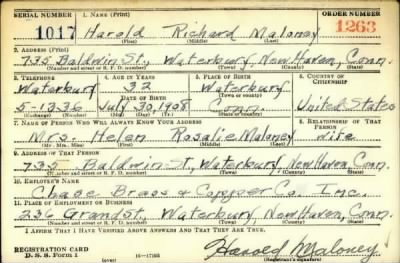 SERIAL NUMBER 1. NAME (Print) ORDER NUMBER
1017 Harold Richard Maloney 1263
(First) (Middle) (Last)
2. ADDRESS (Print)
735 Baldwin St., Waterbury, New Haven, Conn.
(Number and street or R. F. D. number) (Town) (County) (State)
3. TELEPHONE 4. AGE IN YEARS 5. PLACE OF BIRTH 6. COUNTRY OF CITIZENSHIP
Waterbury 32 Waterbury
DATE OF BIRTH (Town or county)
5-1336 July 30, 1908 Conn. United States
(Exchange) (Number) (Mo.) (Day) (Yr.) (State or country)
7. NAME OF PERSON WHO WILL ALWAYS KNOW YOUR ADDRESS 8. RELATIONSHIP OF THAT PERSON
Mrs. Helen Rosalie Maloney wife
(Mr., Mrs., Miss) (First) (Middle) (Last)
9. ADDRESS OF THAT PERSON
735 Baldwin St., Waterbury, New Haven, Conn.
(Number and street or R. F. D. number) (Town) (County) (State)
10. EMPLOYER'S NAME
Chase Brass & Copper Co. Inc.
11. PLACE OF EMPLOYMENT OR BUSINESS
236 Grand St., Waterbury, New Haven, Conn.
(Number and street or R. F. D. number) (Town) (County) (State)
I AFFIRM THAT I HAVE VERIFIED ABOVE ANSWERS AND THAT THEY ARE TRUE.
REGISTRATION CARD
D. S. S. Form 1 (over) 16-17105 Harold Maloney
(Registrant's signature)